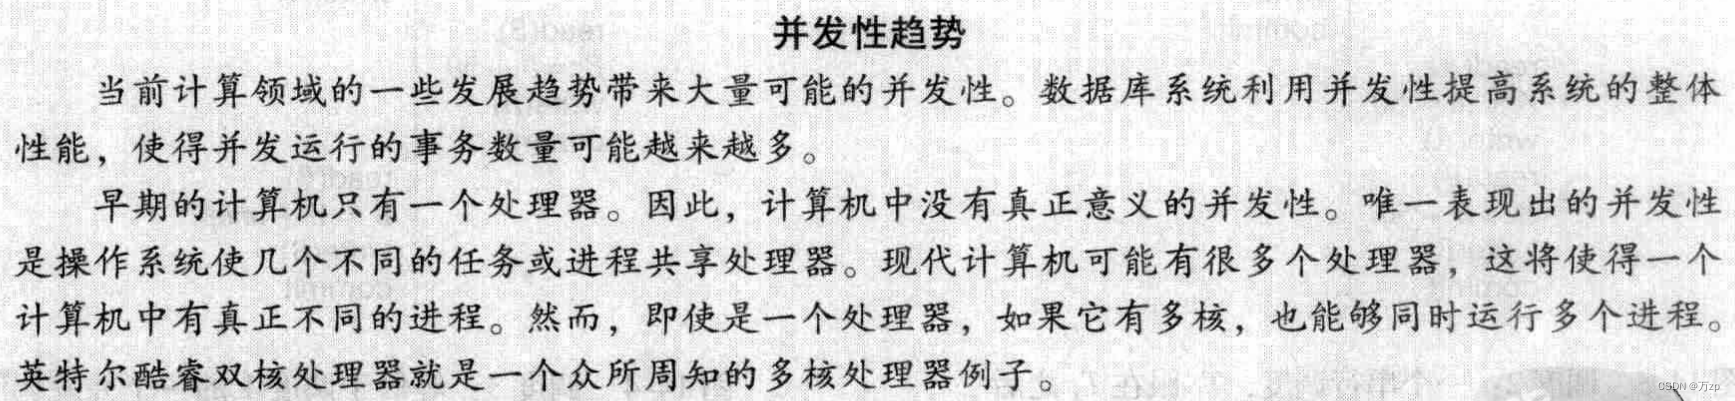 并发性趋势
当前计算领域的一些发展趋势带来大量可能的并发性。数据库系统利用并发性提高系统的整体
性能，使得并发运行的事务数量可能越来越多。
早期的计算机只有一个处理器。因此，计算机中没有真正意义的并发性。唯一表现出的并发性
是操作系统使几个不同的任务或进程共享处理器。现代计算机可能有很多个处理器，这将使得一个
计算机中有真正不同的进程。然而，即使是一个处理器，如果它有多核，也能够同时运行多个进程。
英特尔酷睿双核处理器就是一个众所周知的多核处理器例子。
CSDN @万zp